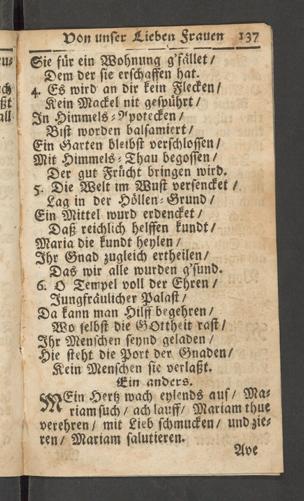 Von unser Lieben Frauen 137
Sie für ein Wohnung g'fället /
Dem der sie erschaffen hat.
4. Es wird an dir kein Flecken /
Kein Mackel nit gespührt /
In Himmels-Apotecken /
Bist worden balsamiert /
Ein Garten bleibst verschlossen /
Mit Himmels-Thau begossen /
Der gut Frücht bringen wird.
5. Die Welt im Wust versencket /
Lag in der Höllen-Grund /
Ein Mittel wurd erdencket /
Daß reichlich helffen kundt /
Maria die kundt heylen /
Ihr Gnad zugleich ertheilen /
Das wir alle wurden g'sund.
6. O Tempel voll der Ehren /
Jungfräulicher Palast /
Da kann man Hilff begehren /
Wo selbst die GOttheit rast /
Ihr Menschen seynd geladen /
Hie steht die Port der Gnaden /
Kein Menschen sie verlaßt.
Ein anders.
MEin Hertz wach eylends auf / Ma-
riam such / ach lauff / Mariam thue
verehren / mit Lieb schmucken / und zie-
ren / Mariam salutieren.
Ave